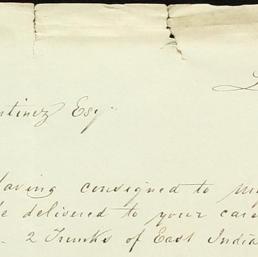 Esqr
Having consigned to my
be delivered to your care
2 Trunks of East India